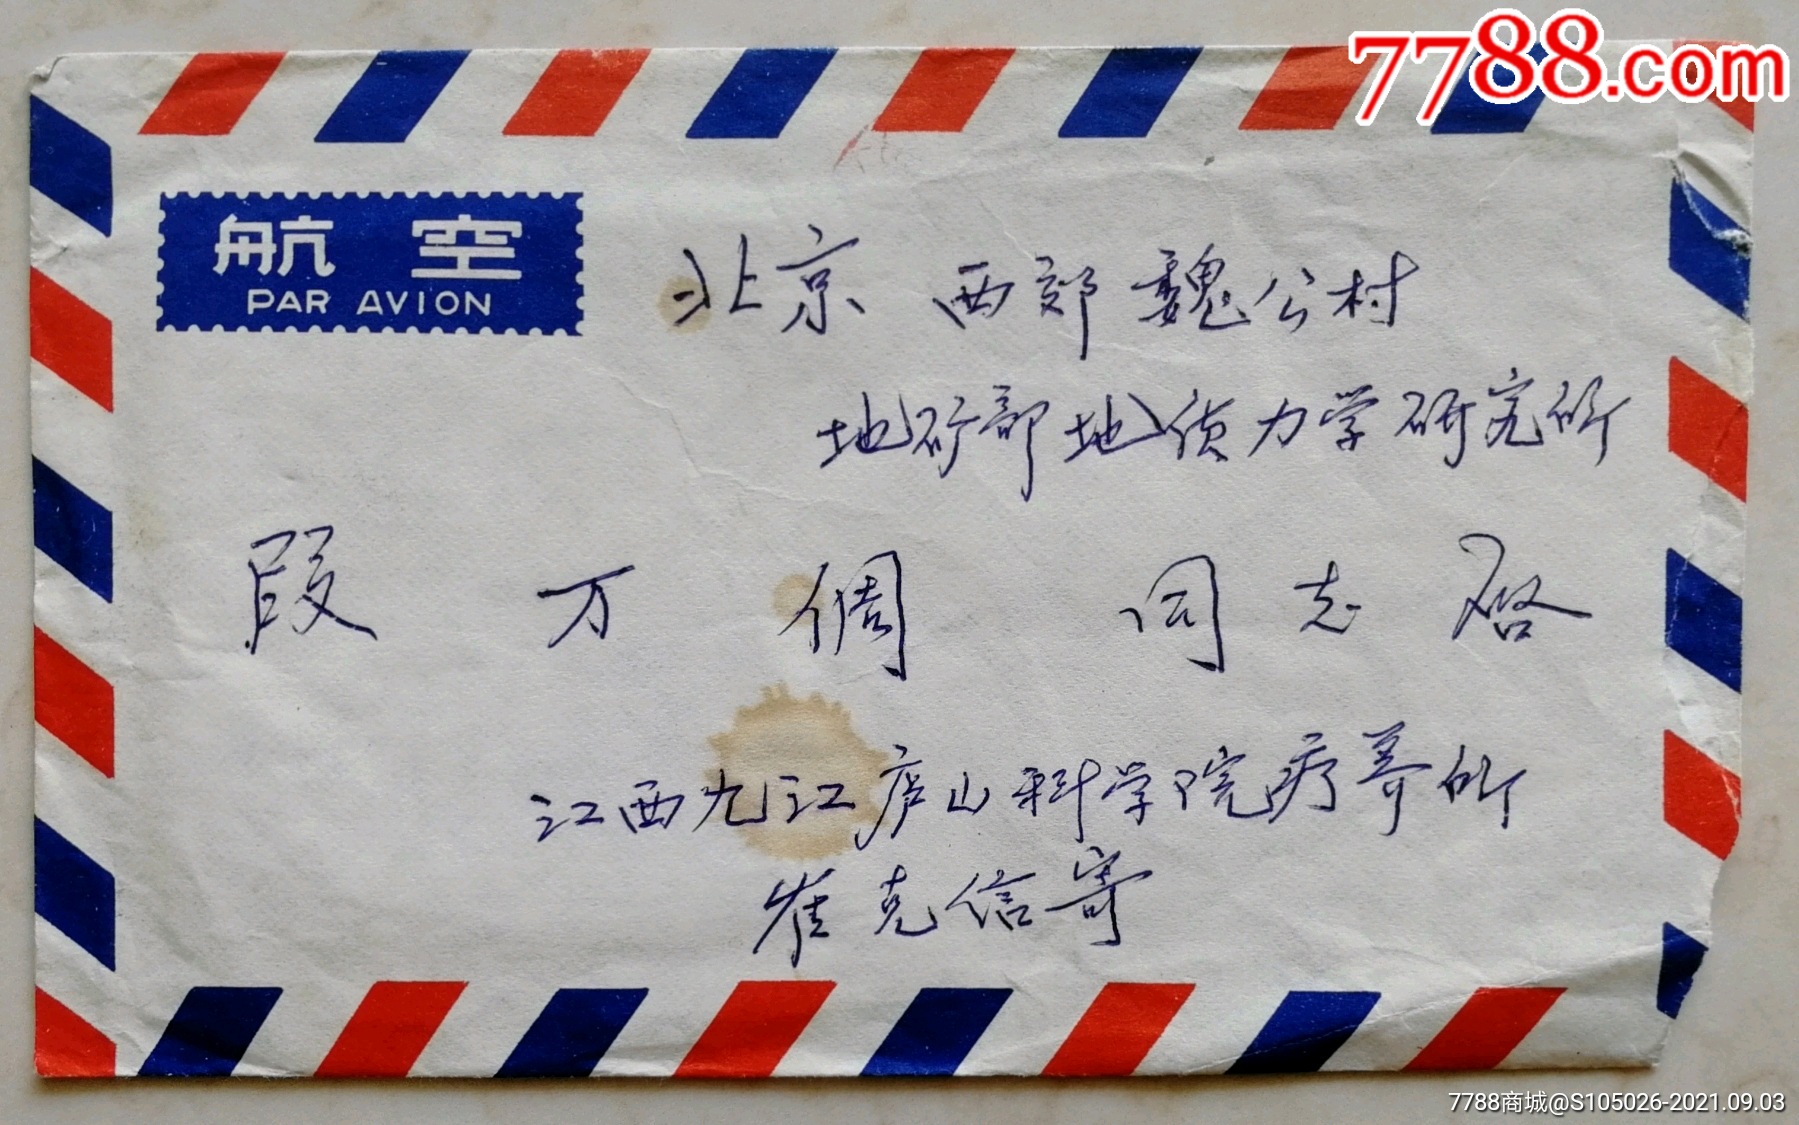 7788.com
航空
PAR AVION
北京 西郊魏公村
地矿部地质力学研究所
段万倜 同志启
江西九江庐山科学院疗养所
崔克信寄
7788商城@S105026-2021.09.03